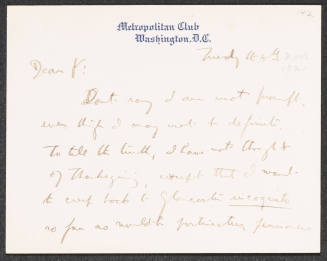 Metropolitan Club
Washington, D.C.
Dear P:
Dont say I am not prompt,
even tho I may not be definite.
To tell the truth, I have not thought
of Thanksgiving, except that I want
to creep back to Gloucester incognito
so far as